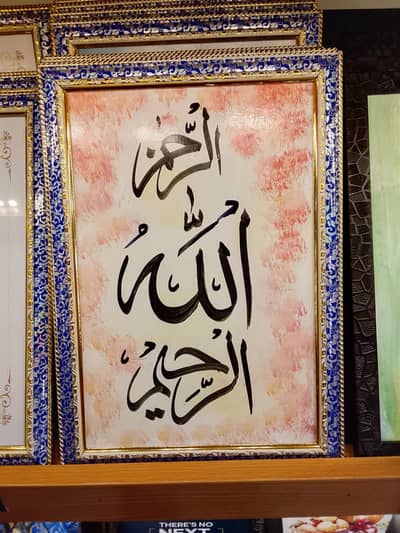 الرحمن
اللّٰهُ
الرَّحِيمُ
THERE'S NO
NEXT